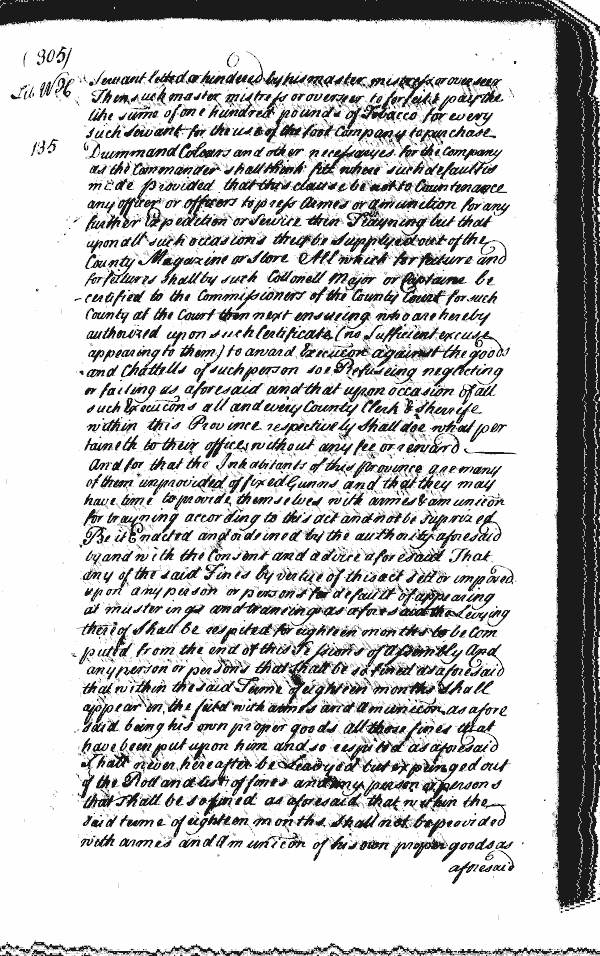 (305)
Lib W H
Servant letted or hindered by his master mistress or overseer
Then such master mistress or overseer to forfeit & pay the
like sume of one hundred pounds of Tobacco for every
such servant for the use of the foot Company to purchase
135
Drumm and Colours and other necessaryes for the Company
as the Commander shall think fitt where such default is
made Provided that this clause be not to Countenance
any officer or officers to press Armes or amunition for any
further Expedition or Service then Trayning but that
upon all such occasions they be Supplyed out of the
County Magazine or Store All which forfeiture and
forfeitures shall by such Collonell Major or Captaine be
certified to the Commissioners of the County Court for such
County at the Court then next ensueing who are hereby
authorized upon such Certificate (no Sufficient excuse
appearing to them) to award Execucon against the goods
and Chattells of such person soe Refuseing neglecting
or failing as aforesaid and that upon occasion of all
such Execucons all and every County Clerk & sherife
within this Province respectively Shall doe what per
taineth to their office without any fee or reward
And for that the Inhabitants of this Province are many
of them unprovided of fixed Gunns and that they may
have time to provide themselves with armes & amunicon
for trayning according to this act and not be Suprized
Be it Enacted and ordeined by the authority aforesaid
by and with the Consent and advice aforesaid That
any of the said Fines by vertue of this act sett or imposed
upon any person or persons for default of appearing
at musterings and trainings as aforesaid the Levying
thereof Shall be respited for eighteen months to be Com
puted from the end of this Sessions of Assembly And
any person or persons that shall be so fined as aforesaid
that within the said Terme of eighteen months Shall
appear in the feild with armes and amunicon as afore
said being his own proper goods all those fines that
have been put upon him and so respited as aforesaid
Shall never hereafter be Leavyed but expunged out
of the Roll and list of fines and any person or persons
that shall be so fined as aforesaid that within the
said terme of eighteen months shall not be provided
with armes and amunicon of his own proper goods as
aforesaid